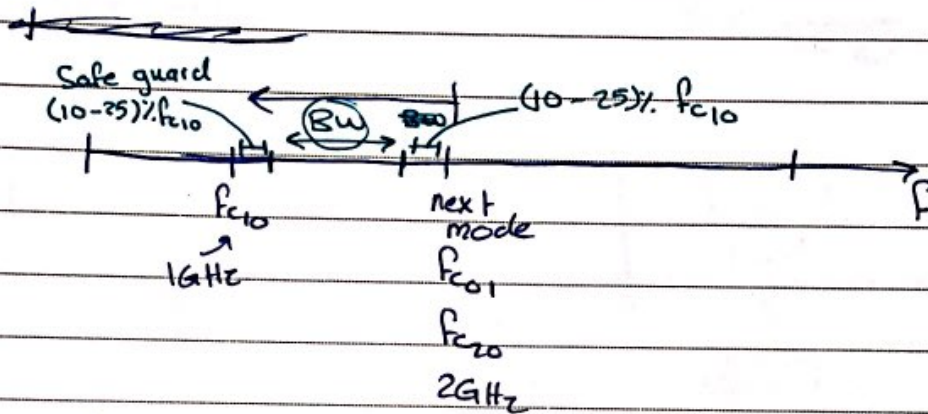 Safe guard
(10-25)% fc10
BW
(10-25)% fc10
fc10
1GHz
next
mode
fc01
fc20
2GHz
f